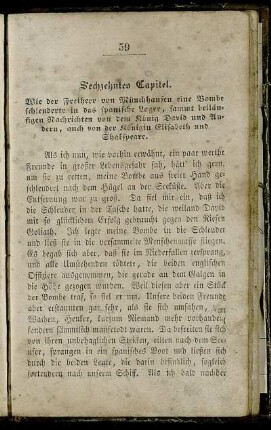 59
Sechzehntes Capitel.
Wie der Freiherr von Münchhausen eine Bombe
schleuderte in das spanische Lager, sammt beiläu-
figen Nachrichten von dem König David und An-
dern, auch von der Königin Elisabeth und
Shakspeare.
Als ich nun, wie vorhin erwähnt, ein paar werthe
Freunde in großer Lebensgefahr sah, hätt' ich gern,
um sie zu retten, meine Bombe aus freier Hand ge-
schleudert nach dem Hügel an der Seeküste. Aber die
Entfernung war zu groß. Da fiel mir ein, daß ich
die Schleuder in der Tasche hatte, die weiland David mit
so glücklichem Erfolg gebraucht gegen den Riesen
Goliath. Ich legte meine Bombe in die Schleuder
und ließ sie in die versammelte Menschenmasse fliegen.
Es begab sich aber, daß sie im Niederfallen zersprang,
und alle Umstehenden tödtete, die beiden englischen
Offiziere ausgenommen, die gerade an den Galgen in
die Höhe gezogen wurden. Weil diesen aber ein Stück
der Bombe traf, so fiel er um. Unsere beiden Freunde
aber erstaunten gar sehr, als sie sich umsahen, von
Wachen, Henker, kurzum Niemand mehr vorhanden,
sondern sämmtlich mausetodt waren. Da befreiten sie sich
von ihren unbehaglichen Stricken, eilten nach dem See-
ufer, sprangen in ein spanisches Boot und ließen sich
durch die beiden Leute, die darin befindlich, sogleich
fortrudern nach unserem Schiff. Als ich bald nachher